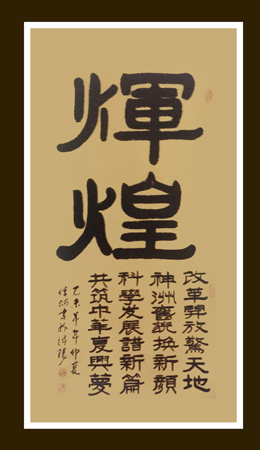 輝煌
改革開放驚天地
神洲舊貌换新顔
科學发展譜新篇
共筑中華复興夢
乙未羊年仲夏
書於